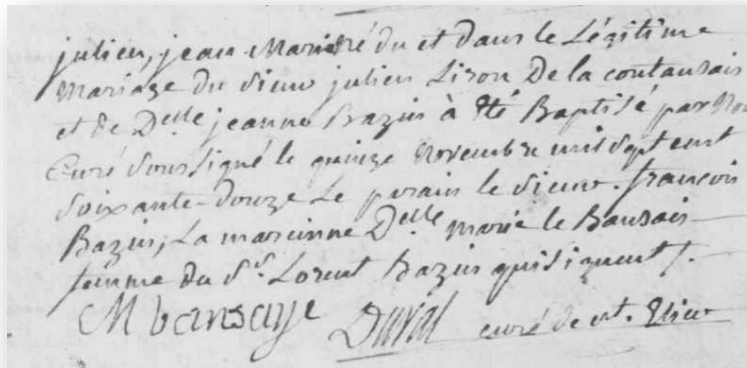 julien, jean Marie né du et dans le Légitime
Mariage du Sieur julien Liron De la contausais
et de Delle jeanne Bazin à été Baptisé par Nou
Curé Soussigné le quinze Novembre mil sept cent
Soixante-Douze Le parain le Sieur françois
Bazin, La mareinne Delle marie le Bansais
femme du Sr Lorent Bazin qui signent /.
M bansaye Duval curé de st. Elier